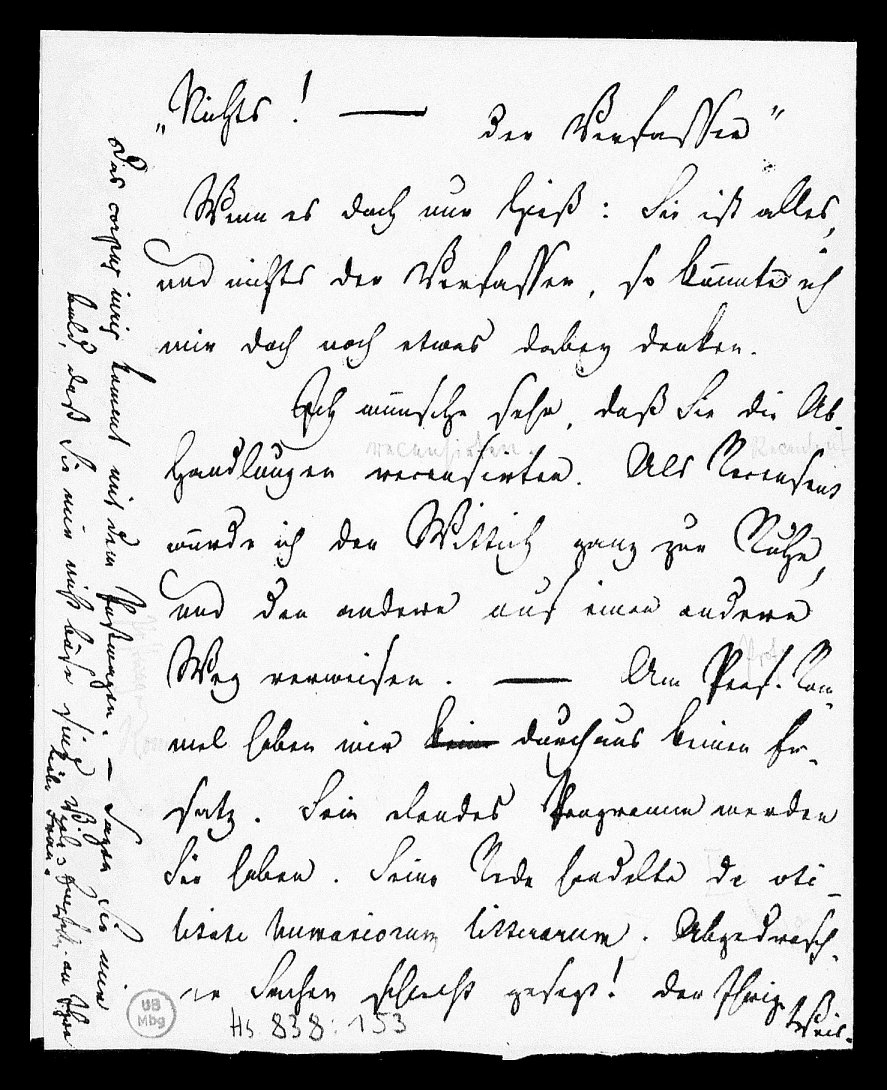 „Nichts! — der Verfasser“
Wenn es doch nur hieß: Sie ist alles,
und nichts der Verfasser, so könnte ich
mir doch noch etwas dabey denken.
Ich wünsche sehr, daß Sie die Ab-
handlungen recensirten. Als Recensent
würde ich den Wittich ganz zur Ruhe,
und den andern auf einen andern
Weg verweisen. — Am Prof. Rom-
mel haben wir kein durchaus keinen Er-
satz. Sein elendes Programm werden
Sie haben. Seine Rede handelte de uti-
litate humaniorum litterarum. Abgedrosch-
ne Sachen schlecht gesagt! der Ihrige
Weis.
Das corpus iuris kommt mit dem Postwagen. — Sagen Sie mir
bald, daß Sie mir nicht böse sind. Viele an Ihre
liebe Frau.
recensirten.
Recensent
UB
Mbg
Hs 838:153